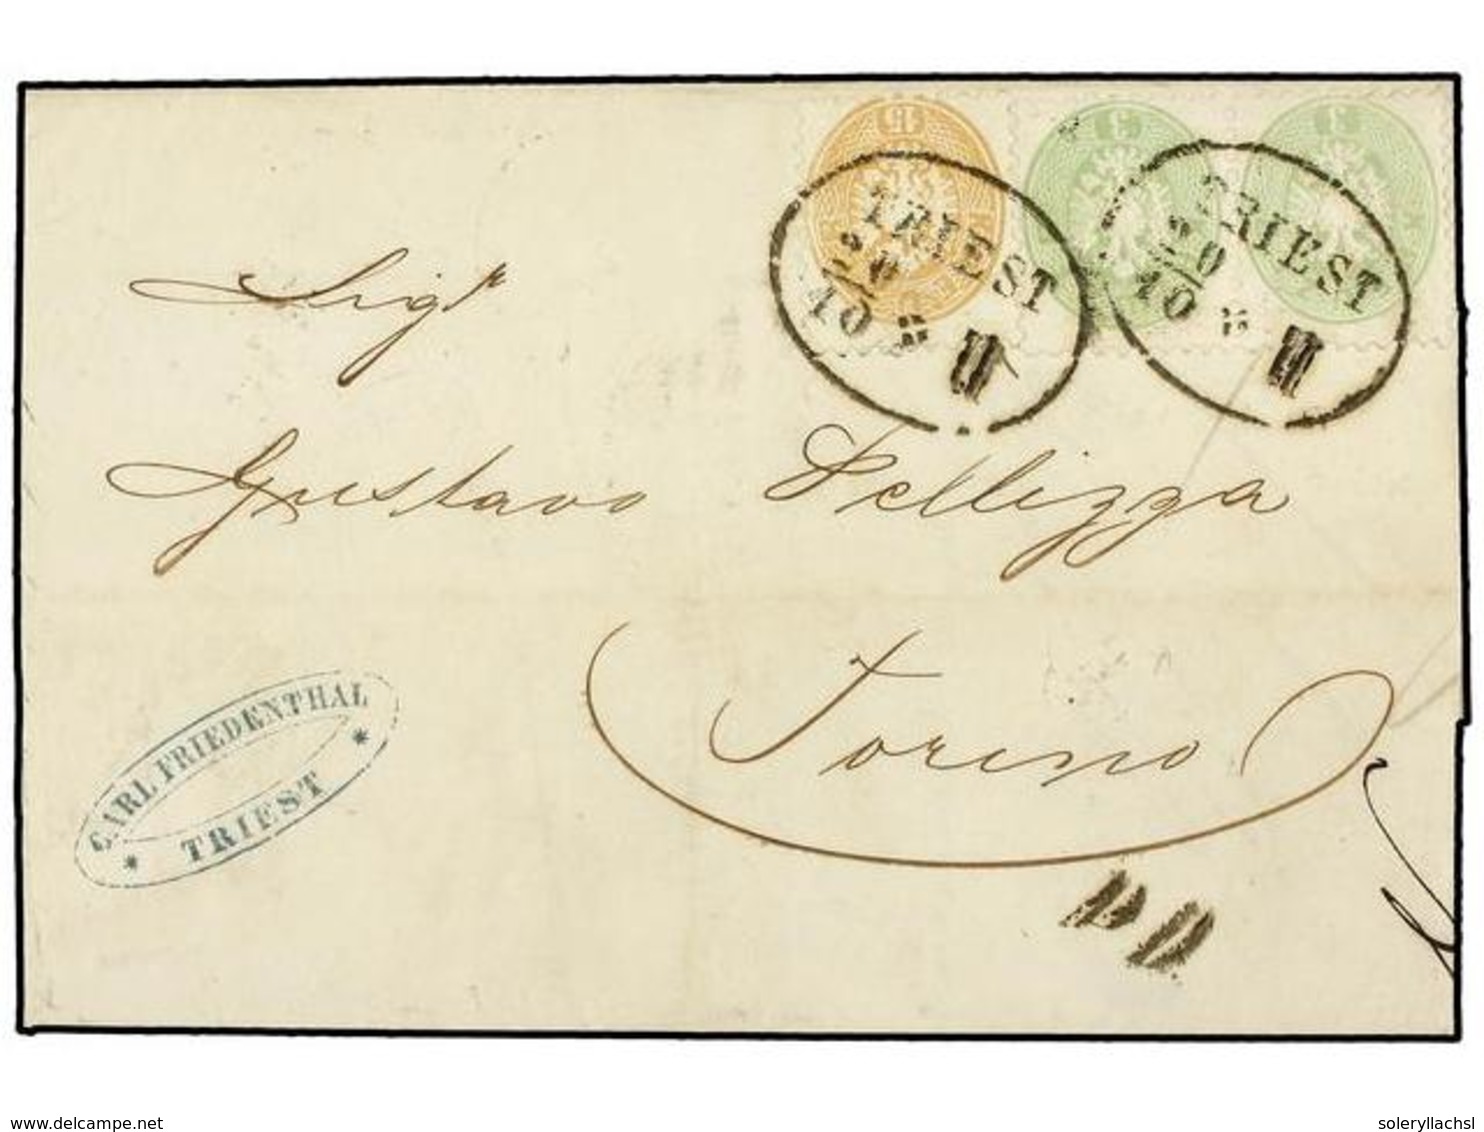 15 3 3
TRIEST
20
10
TRIEST
20
10
Sigr
Gustavo Pellizza
Torino
CARL FRIEDENTHAL
* TRIEST *
PD
delcampe.net
soleryllachsl